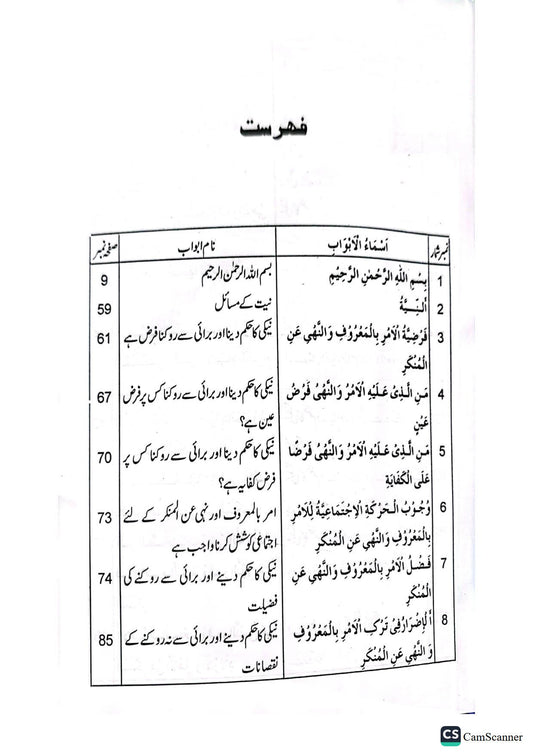 فہرست
نمبر شمار اَسْمَاءُ الْاَبْوَابِ نام ابواب صفحہ نمبر
1 بِسْمِ اللّٰهِ الرَّحْمٰنِ الرَّحِيْمِ بسم اللہ الرحمٰن الرحیم 9
2 اَلنِّيَّةُ نیت کے مسائل 59
3 فَرْضِيَّةُ الْاَمْرِ بِالْمَعْرُوْفِ وَ النَّهْيِ عَنِ نیکی کا حکم دینا اور برائی سے روکنا فرض ہے 61
الْمُنْكَرِ
4 مَنِ الَّذِيْ عَلَيْهِ الْاَمْرُ وَ النَّهْيُ فَرْضُ نیکی کا حکم دینا اور برائی سے روکنا کس پر فرض 67
عَيْنٍ عین ہے؟
5 مَنِ الَّذِيْ عَلَيْهِ الْاَمْرُ وَ النَّهْيُ فَرْضًا نیکی کا حکم دینا اور برائی سے روکنا کس پر 70
عَلَى الْكَفَايَةِ فرض کفایہ ہے؟
6 وُجُوْبُ الْحَرَكَةِ الْاِجْتِمَاعِيَّةُ لِلْاَمْرِ امر بالمعروف اور نہی عن المنکر کے لئے 73
بِالْمَعْرُوْفِ وَ النَّهْيِ عَنِ الْمُنْكَرِ اجتماعی کوشش کرنا واجب ہے
7 فَضْلُ الْاَمْرِ بِالْمَعْرُوْفِ وَ النَّهْيِ عَنِ نیکی کا حکم دینے اور برائی سے روکنے کی 74
الْمُنْكَرِ فضیلت
8 اَلْاِضْرَارُ فِيْ تَرْكِ الْاَمْرِ بِالْمَعْرُوْفِ نیکی کا حکم دینے اور برائی سے نہ روکنے کے 85
وَ النَّهْيِ عَنِ الْمُنْكَرِ نقصانات
CS CamScanner